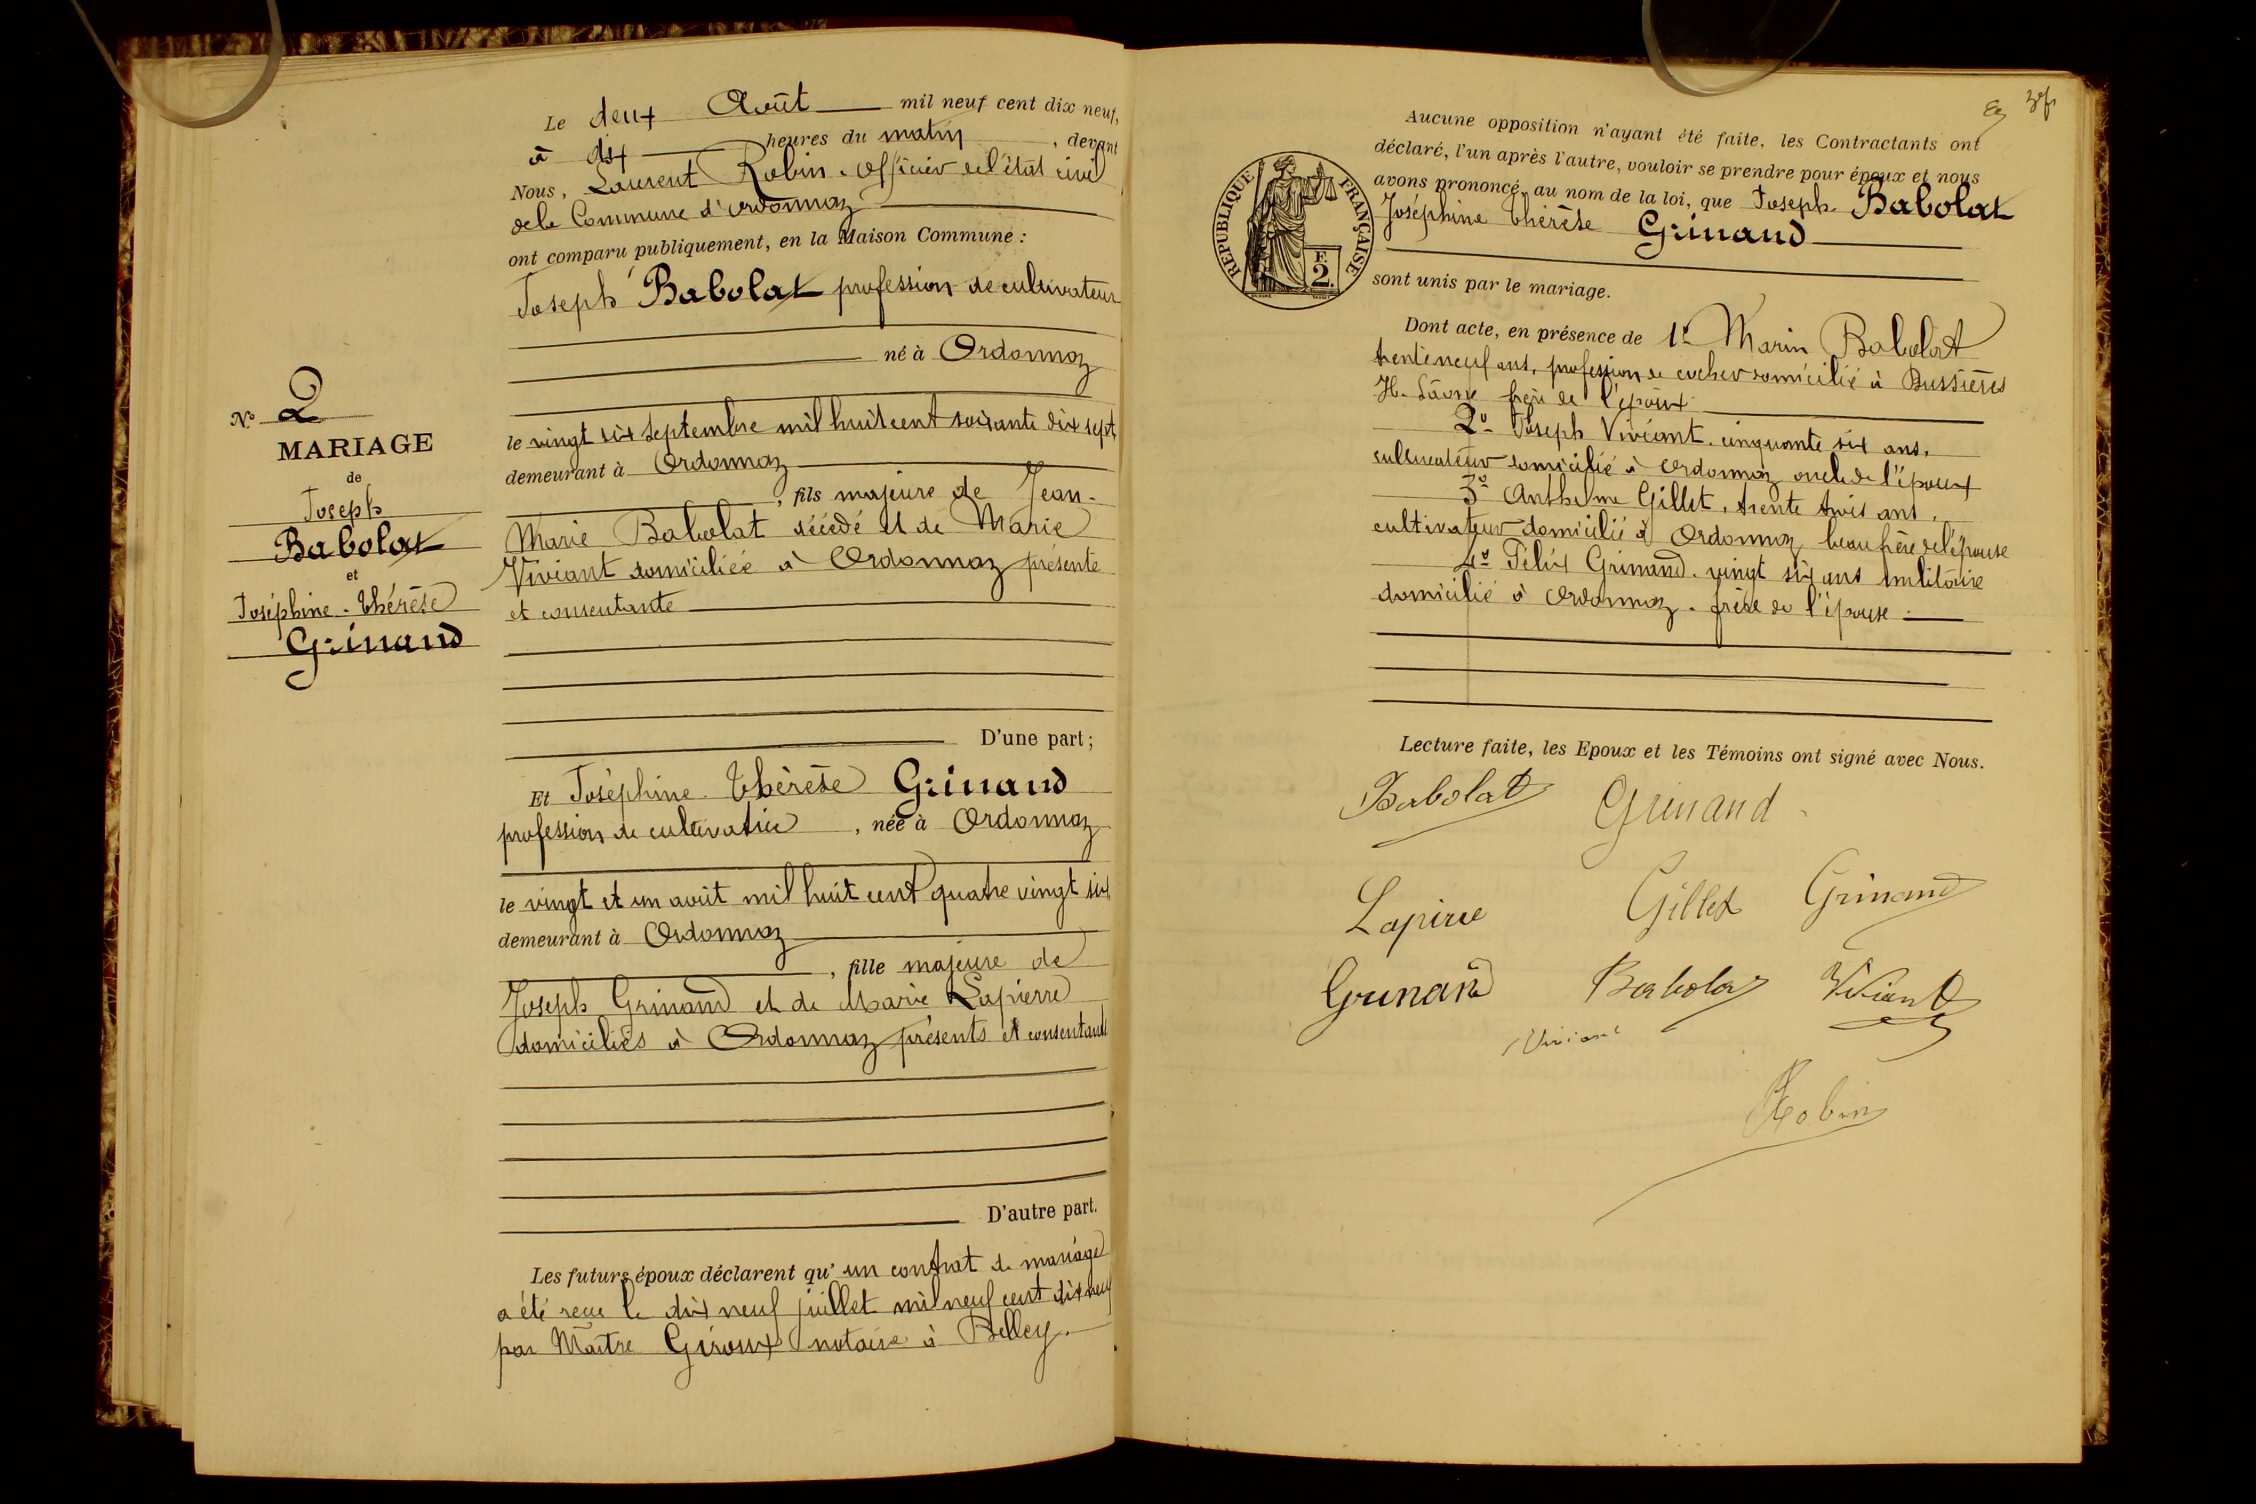 Le deux Août mil neuf cent dix neuf,
à dix heures du matin, devant
Nous, Laurent Robin. Officier de l'état civil
de la Commune d'Ordonnaz
ont comparu publiquement, en la Maison Commune :
Joseph Babolat profession de cultivateur
né à Ordonnaz
le vingt six septembre mil huit cent soixante dix sept
demeurant à Ordonnaz
, fils majeure de Jean-
Marie Babolat décédé et de Marie
Viviant domiciliée à Ordonnaz présente
et consentante
D'une part ;
N° 2
MARIAGE
de
Joseph
Babolat
et
Joséphine-Thérèse
Grinand
Et Joséphine Thérèse Grinand
profession de cultivatrice, née à Ordonnaz
le vingt et un août mil huit cent quatre vingt six
demeurant à Ordonnaz
, fille majeure de
Joseph Grinand et de Marie Lapierre
domiciliés à Ordonnaz présents et consentants
D'autre part.
Les futurs époux déclarent qu'un contrat de mariage
a été recu le dix neuf juillet mil neuf cent dix neuf
par Maître Giroux notaire à Belley.
Aucune opposition n'ayant été faite, les Contractants ont
déclaré, l'un après l'autre, vouloir se prendre pour époux et nous
avons prononcé, au nom de la loi, que Joseph Babolat
Joséphine Thérèse Grinand
sont unis par le mariage.
RÉPUBLIQUE FRANÇAISE
F.
2.
Dont acte, en présence de 1° Marin Babolat
trente neuf ans, profession de cocher domicilié à Bussières
H. Saône frère de l'époux
2° Joseph Viviant. cinquante six ans.
cultivateur domicilié à Ordonnaz oncle de l'époux
3° Anthelme Gillet, trente trois ans.
cultivateur domicilié à Ordonnaz beau frère de l'épouse
4° Félix Grinand. vingt six ans militaire
domicilié à Ordonnaz. frère de l'épouse.
Lecture faite, les Epoux et les Témoins ont signé avec Nous.
Babolat Grinand
Lapirre Gillet Grinand
Grinand Babolat Viviant
Viviant
Robin